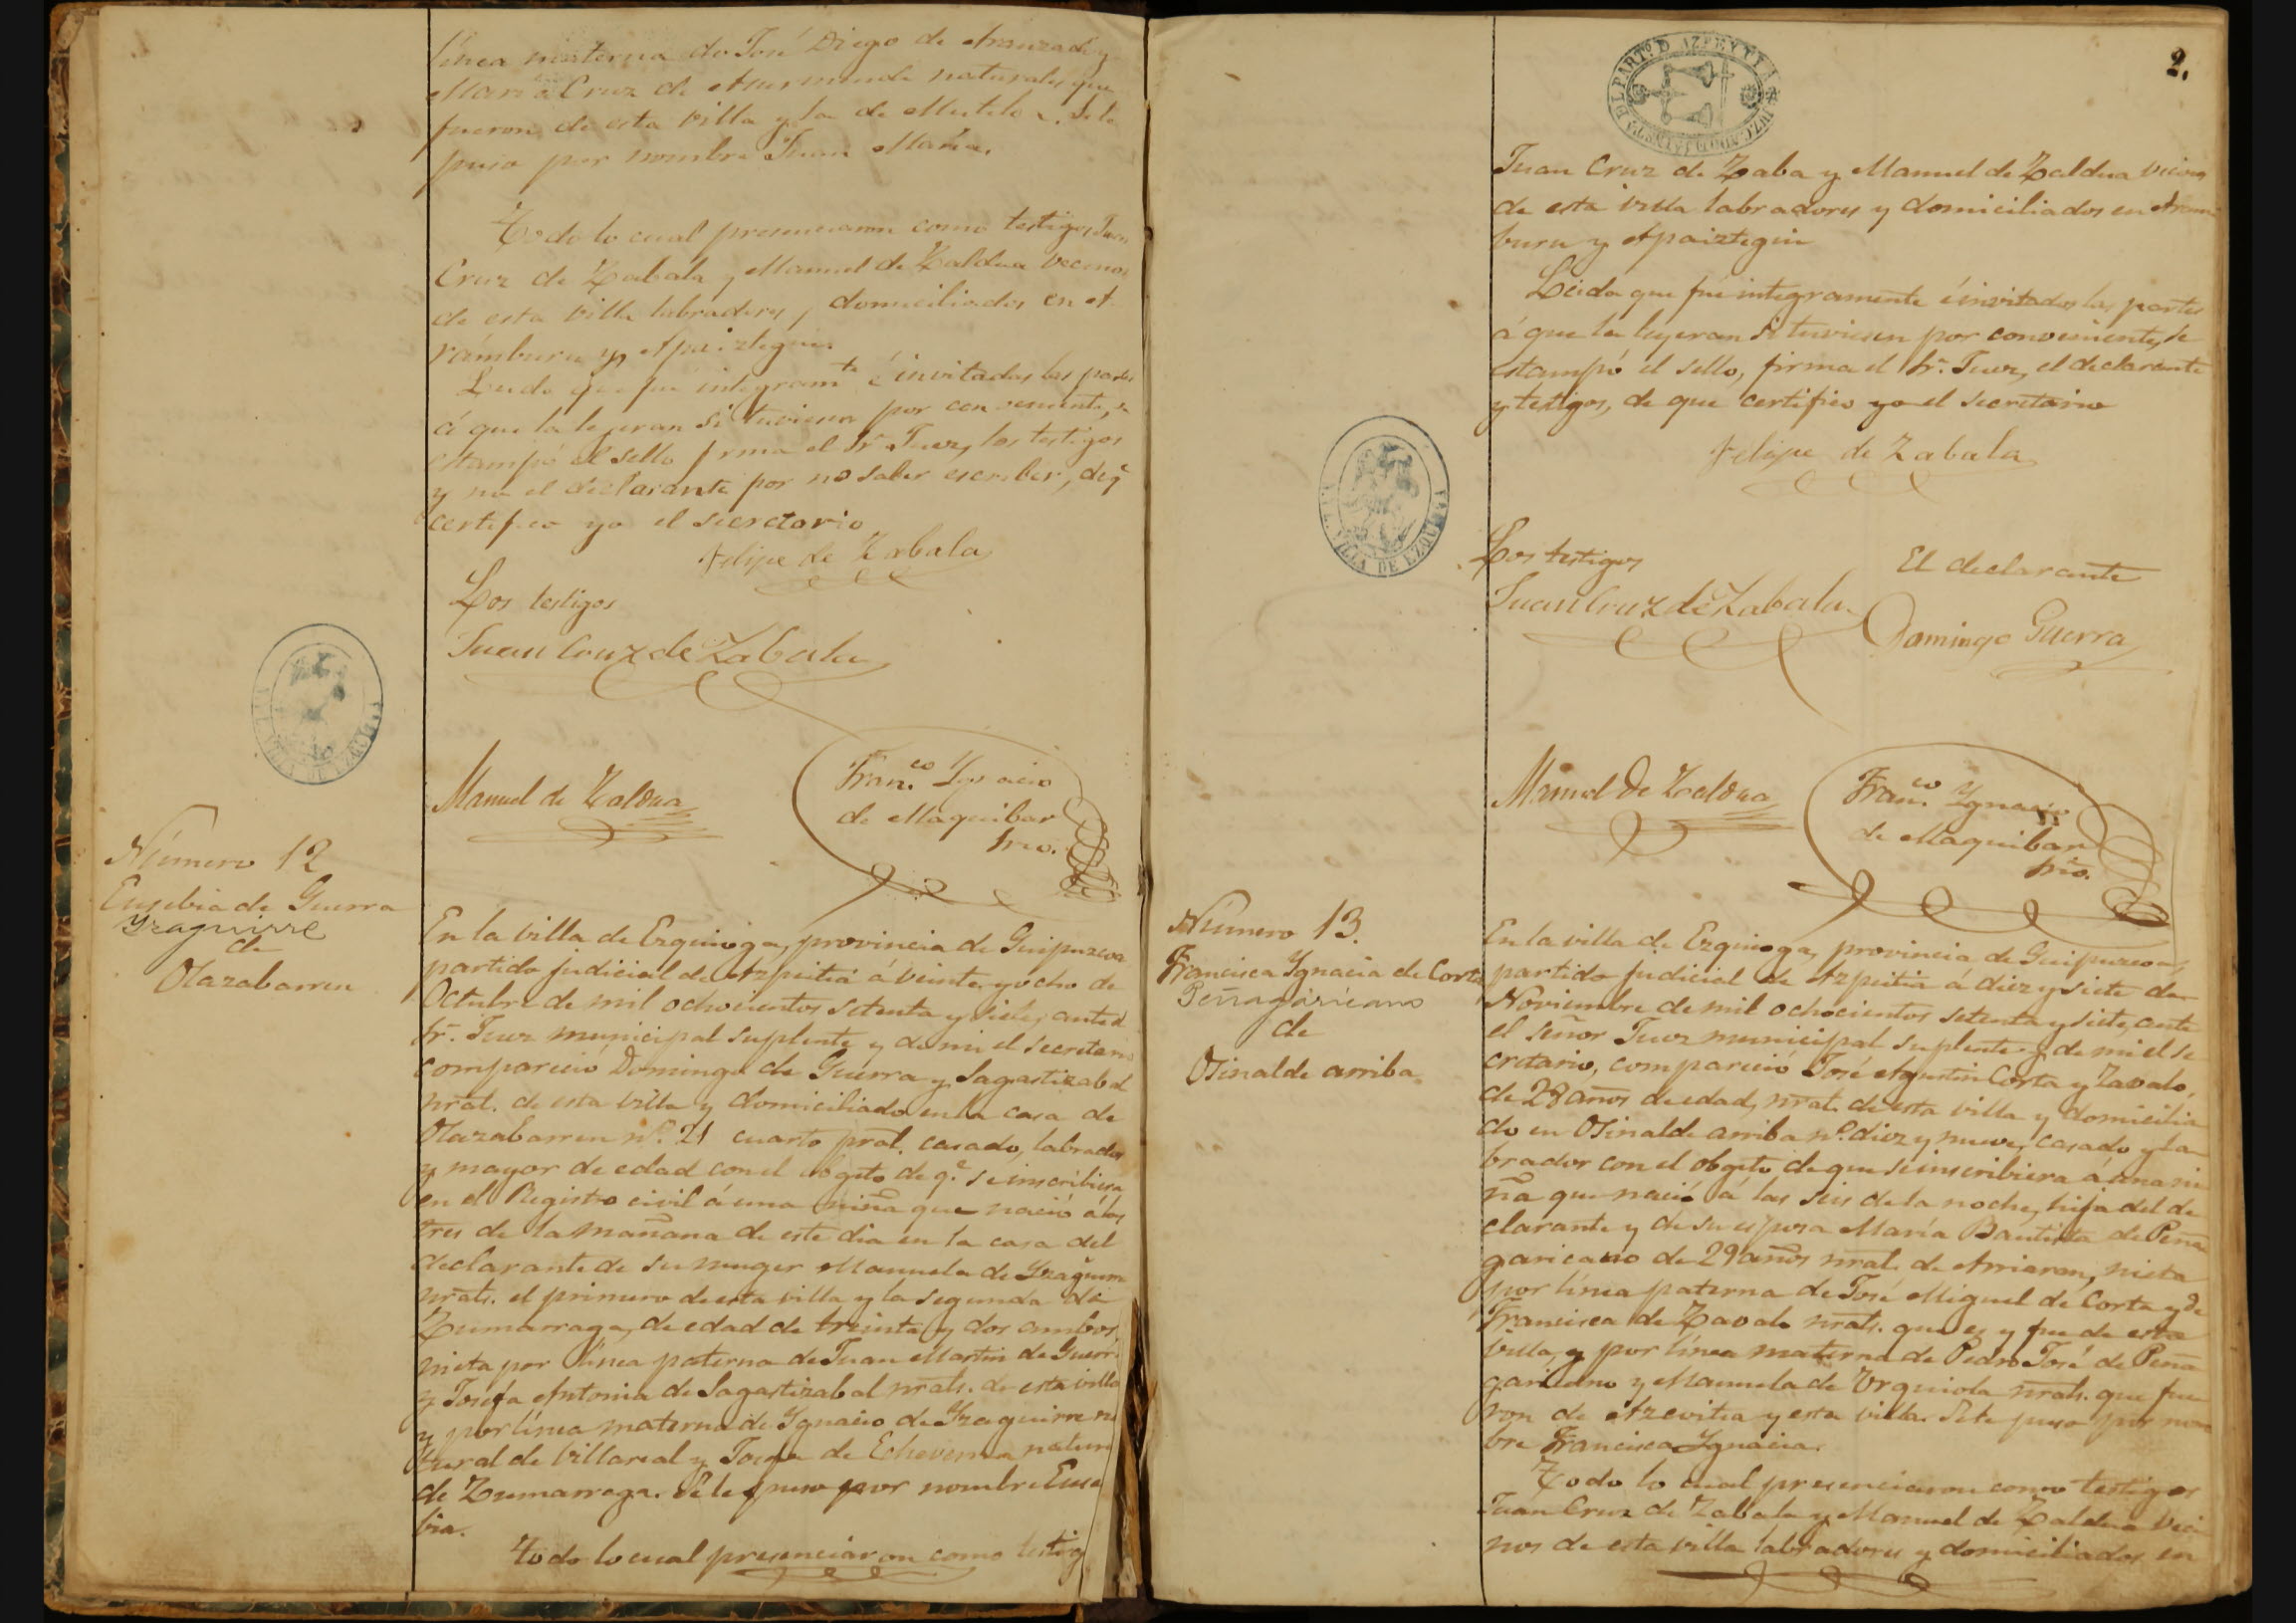 línea materna de José Diego de Aranzadi y
Maria Cruz de Asurmendi naturales que
fueron de esta villa y la de Mutiloa. Se le
puso por nombre Juan María.
Todo lo cual presenciaron como testigos Juan
Cruz de Zabala y Manuel de Zaldua vecinos
de esta villa labradores, domiciliados en A-
ramburu y Apaiztegui.
Leida que fué integramte é invitadas las partes
á que la leyeran si tuviesen por conveniente, se
estampó el sello firma el Sr. Juez, los testigos
y no el declarante por no saber escribir, de q.e
certifico yo el secretario
Felipe de Zabala
Los testigos
Juan Cruz de Zabala
Manuel de Zaldua
Fran.co Ygnacio
de Maquibar
Srio.
VILLA DE EZQUIOGA
Número 12
Eusebia de Guerra
Yzaguirre
de
Olazabarren
En la villa de Ezquioga, provincia de Guipuzcoa
partido judicial de Azpeitia á veinte y ocho de
Octubre de mil ochocientos setenta y siete, ante el
Sr. Juez municipal suplente y de mi el secretario
compareció Domingo de Guerra y Sagastizabal
nral. de esta villa y domiciliado en la casa de
Olazabarren nº. 21 cuarto pral. casado, labrador
y mayor de edad con el obgeto de q.e se inscribiera
en el Registro civil á una niña que nació á las
tres de la mañana de este dia en la casa del
declarante de su muger Manuela de Yzaguirre
nrals. el primero de esta villa y la segunda de
Zumarraga, de edad de treinta y dos ambos,
nieta por línea paterna de Juan Martin de Guerra
y Josefa Antonia de Sagastizabal nrals. de esta villa
y por línea materna de Ygnacio de Yzaguirre na
tural de Villareal y Josefa de Echeverria natural
de Zumarraga. Se le puso por nombre Euse
bia.
Todo lo cual presenciaron como testig
2.
JUZGADO DE 1ª INSTANCIA DEL PARTº D AZPEYTIA
Juan Cruz de Zaba y Manuel de Zaldua vecinos
de esta villa labradores y domiciliados en Aram
buru y Apaiztegui
Leida que fué integramente é invitadas las partes
á que la leyeran si tuviesen por conveniente, se
estampó el sello, firma el Sr. Juez, el declarante
y testigos, de que certifico yo el secretario
Felipe de Zabala
VILLA DE EZQUIOGA
Los testigos
El declarante
Juan Cruz de Zabala
Domingo Guerra
Manuel de Zaldua
Fran.co Ygnacio
de Maquibar
Srio.
Número 13.
Francisca Ygnacia de Corta
Peñagaricano
de
Osinalde arriba
En la villa de Ezquioga, provincia de Guipuzcoa,
partido judicial de Azpeitia á diez y siete de
Noviembre de mil ochocientos setenta y siete, ante
el señor Juez municipal suplente y de mi el se
cretario, compareció José Agustin Corta y Zavalo,
de 28 años de edad, nral. de esta villa y domicilia
do en Osinalde arriba nº. diez y nueve, casado y la
brador con el obgeto de que se inscribiera á una ni
ña que nació á las seis de la noche, hija del de
clarante y de su esposa María Bautista de Peña
garicano de 29 años nral. de Arriaran, nieta
por línea paterna de José Miguel de Corta y de
Francisca de Zavalo nrals. que es y fue de esta
villa, y por línea materna de Pedro José de Peña
garicano y Manuela de Urquiola nrals. que fue
ron de Azcoitia y esta villa. Se le puso por nom
bre Francisca Ygnacia.
Todo lo cual presenciaron como testigos
Juan Cruz de Zabala y Manuel de Zaldua veci
nos de esta villa labradores y domiciliados en